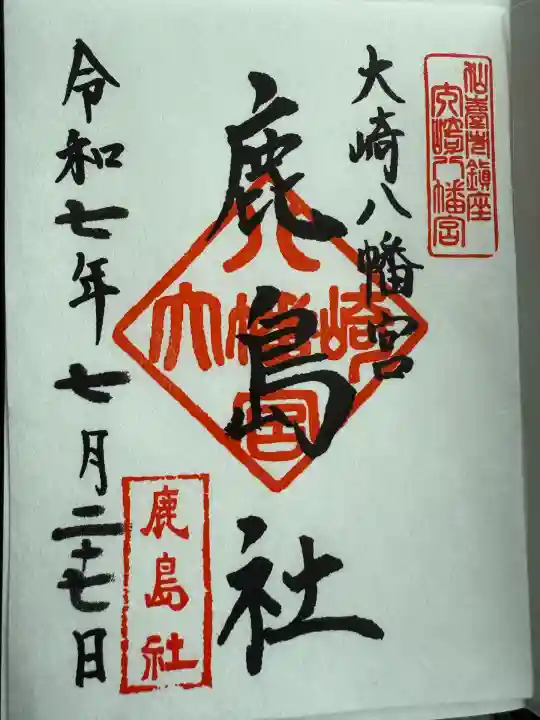 仙臺總鎮座
大崎八幡宮
大崎八幡宮
鹿島社
八
大崎八幡宮
鹿島社
令和七年七月二十七日